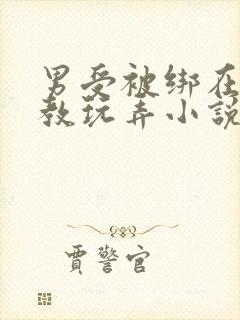 男受被绑在
教玩弄小説
賈警官